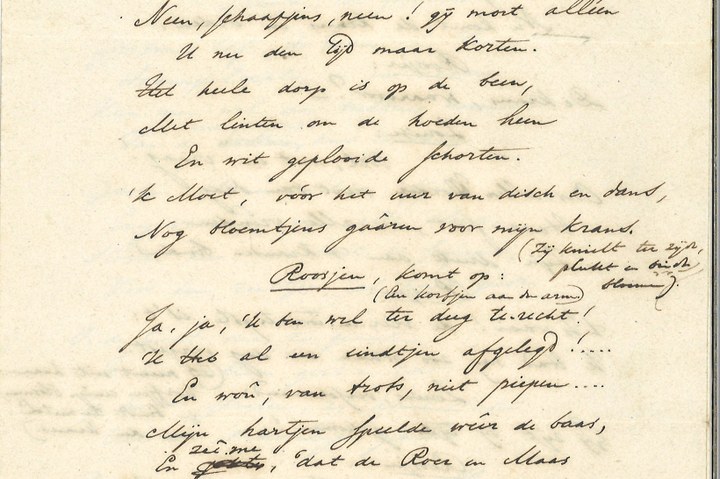 Neen, schaapjens, neen! gij moet alléén
U nu den tijd maar korten.
Het heele dorp is op de been,
Met linten om de hoeden heen
En wit geplooide schorten.
'k Moet, vóór het uur van disch en dans,
Nog bloemtjens gaâren voor mijn krans.
(Zij knielt ter zijde,
plukt en bindt
bloemen).
Roosjen, komt op:
(Een korfjen aan den arm)
Ja, ja, 'k ben wel ter deeg te-recht!
'k Heb al een eindtjen afgelegd!....
En woû, van trots, niet piepen....
Mijn hartjen speelde weêr de baas,
zeî me
En, dat de Roer en Maas